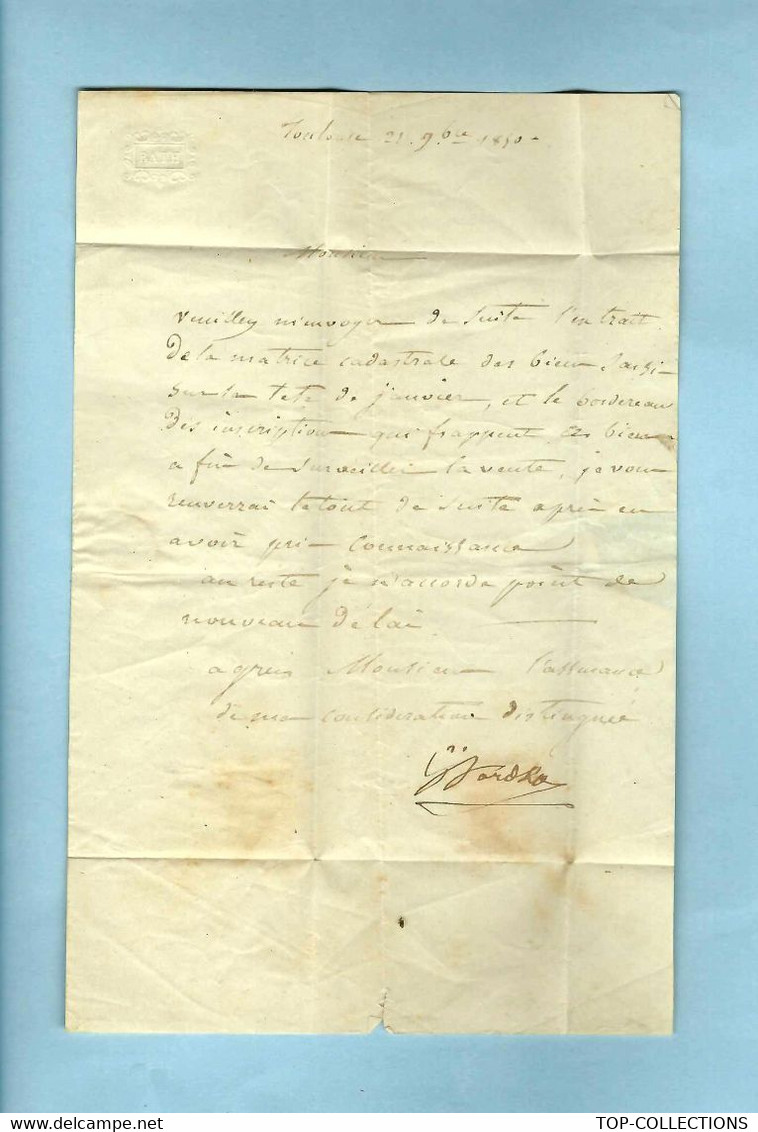 BATH
Toulouse 21. 9bre 1850-
Monsieur
veuillez m'envoyer de suite l'extrait
De la matrice cadastrale des biens saisi
sur la tete de janvier, et le bordereau
Des inscription qui frappent ces biens
a fin de surveiller la vente, je vous
renverrai letout de suite après en
avoir pris connaissance
au reste je n'accorde point de
nouveau délai
agrées Monsieur l'assurance
de ma consideration distinguée
TOP-COLLECTIONS